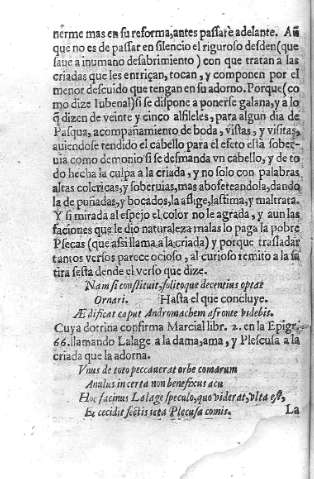 nerme mas en su reforma, antes passarè adelante. Aũ
que no es de passar en silencio el riguroso desden (que
saue a inumano desabrimiento) con que tratan a las
criadas que les entriçan, tocan, y componen por el
menor descuido que tengan en su adorno. Porque (co
mo dize Iubenal) si se dispone a ponerse galana, y a lo
q̃ dizen de veinte y cinco alfileles, para algun dia de
Pasqua, acompañamiento de boda, vistas, y visitas,
auiendose tendido el cabello para el efeto està sober-
uia como demonio si se desmanda vn cabello, y de to
do hecha la culpa a la criada, y no solo con palabras
altas colericas, y soberuias, mas abofeteandola, dando
la de puñadas, y bocados, la aflige, lastima, y maltrata.
Y si mirada al espejo el color no le agrada, y aun las
faciones que le dio naturaleza malas lo paga la pobre
Psecas (que assi llama a la criada) y porque trasladar
tantos versos parece ocioso, al curioso remito a la sa
tira sesta dende el verso que dize.
Nam si constituit, solitoque decentius optat
Ornari. Hasta el que concluye.
Ædificat caput Andromachem afronte videbis.
Cuya dotrina confirma Marcial libr. 2. en la Epigr.
66. llamando Lalage a la dama, ama, y Plescusa a la
criada que la adorna.
Vnus de toto peccauerat orbe comarum
Anulus incerta non benefixus acu
Hoc facinus Lalage speculo, quo viderat, vlta est,
Et cecidit sectis icta Plecusa comis.
La